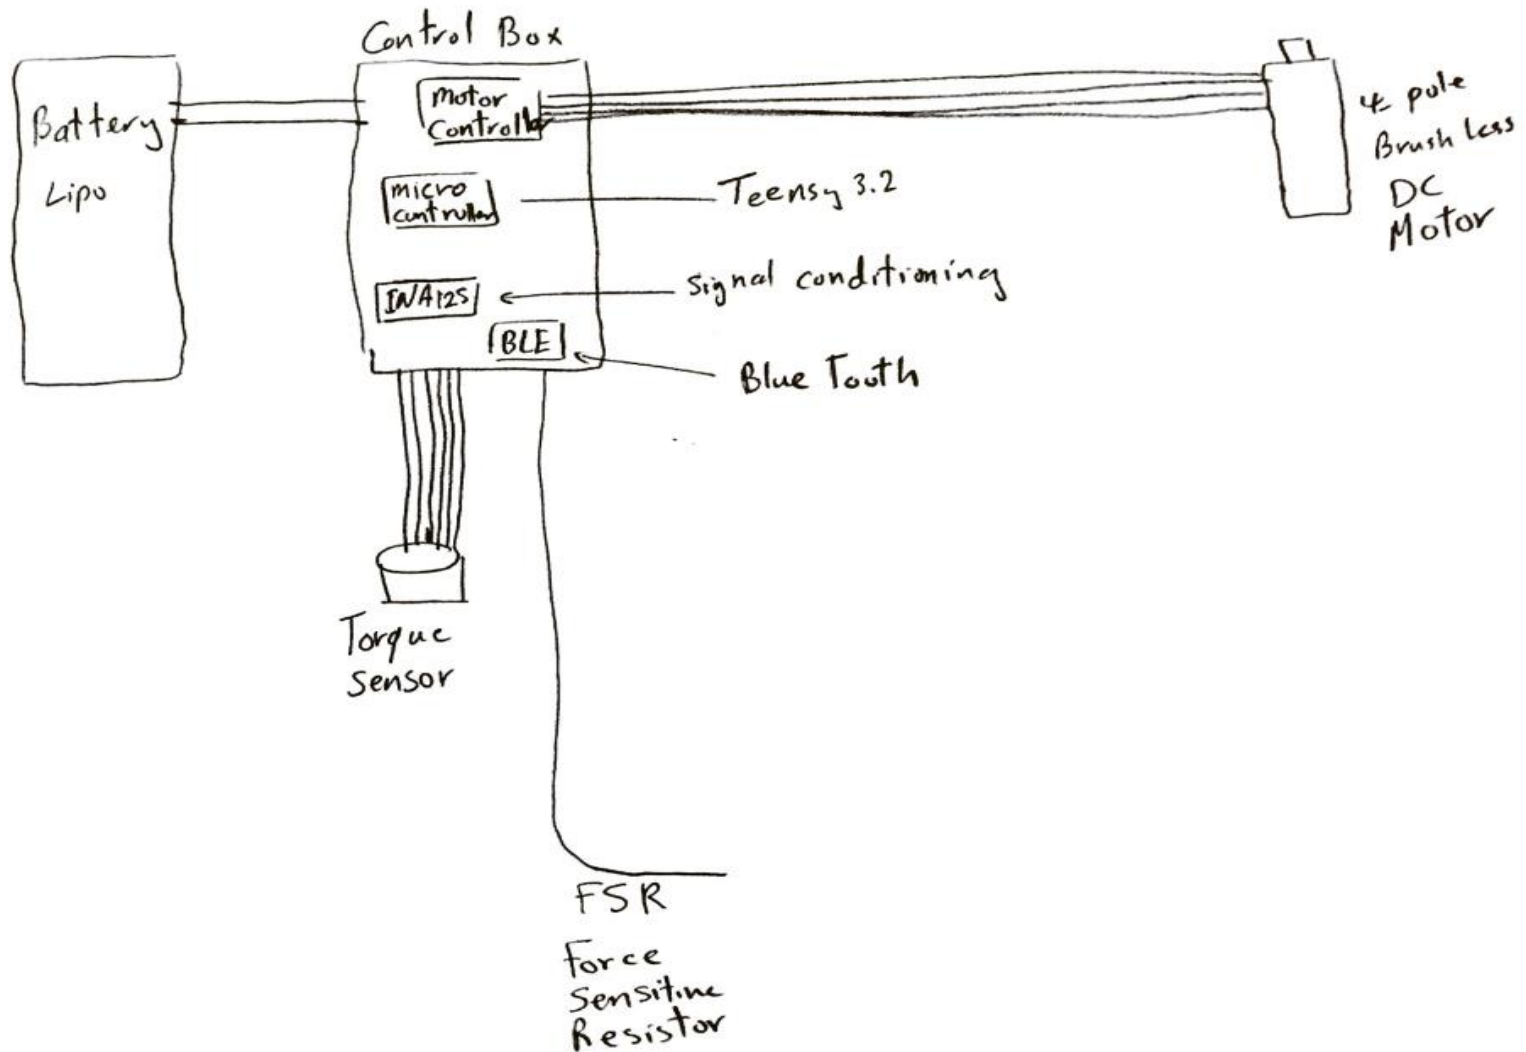 Control Box
Battery
Lipo
Motor
Controller
micro
controller
Teensy 3.2
INA125
Signal conditioning
BLE
Blue Tooth
4 pole
Brush less
DC
Motor
Torque
Sensor
FSR
Force
Sensitive
Resistor